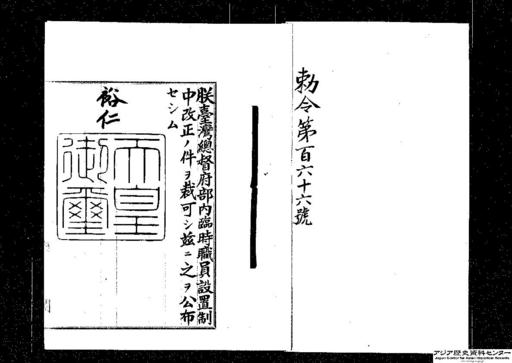 勅令第百六十六號
朕臺灣總督府部内臨時職員設置制
中改正ノ件ヲ裁可シ茲ニ之ヲ公布
セシム
裕仁
天皇
御璽
アジア歴史資料センター
Japan Center for Asian Historical Records